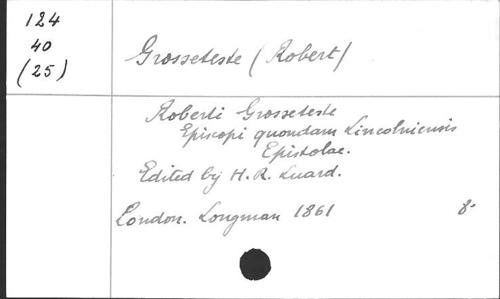 124
40
(25)
Grosseteste (Robert)
Roberti Grosseteste
Episcopi quondam Lincolniensis
Epistolae.
Edited by H. R. Luard.
London. Longman 1861 8°